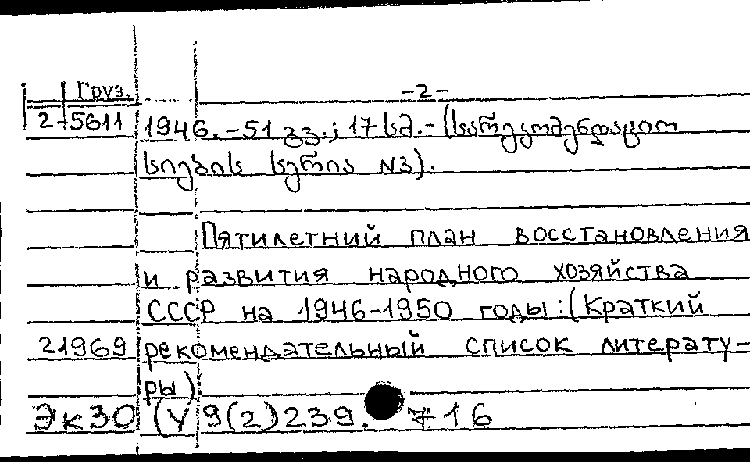 Груз. -2-
2-5611 1946. -51 გვ.; 17 სმ. - (სარეკომენდაციო
სიების სერია N3).
Пятилетний план восстановления
и развития народного хозяйства
СССР на 1946-1950 годы: (Краткий
21969 рекомендательный список литерату-
ры)
Эк30 (У9(2)239. 716